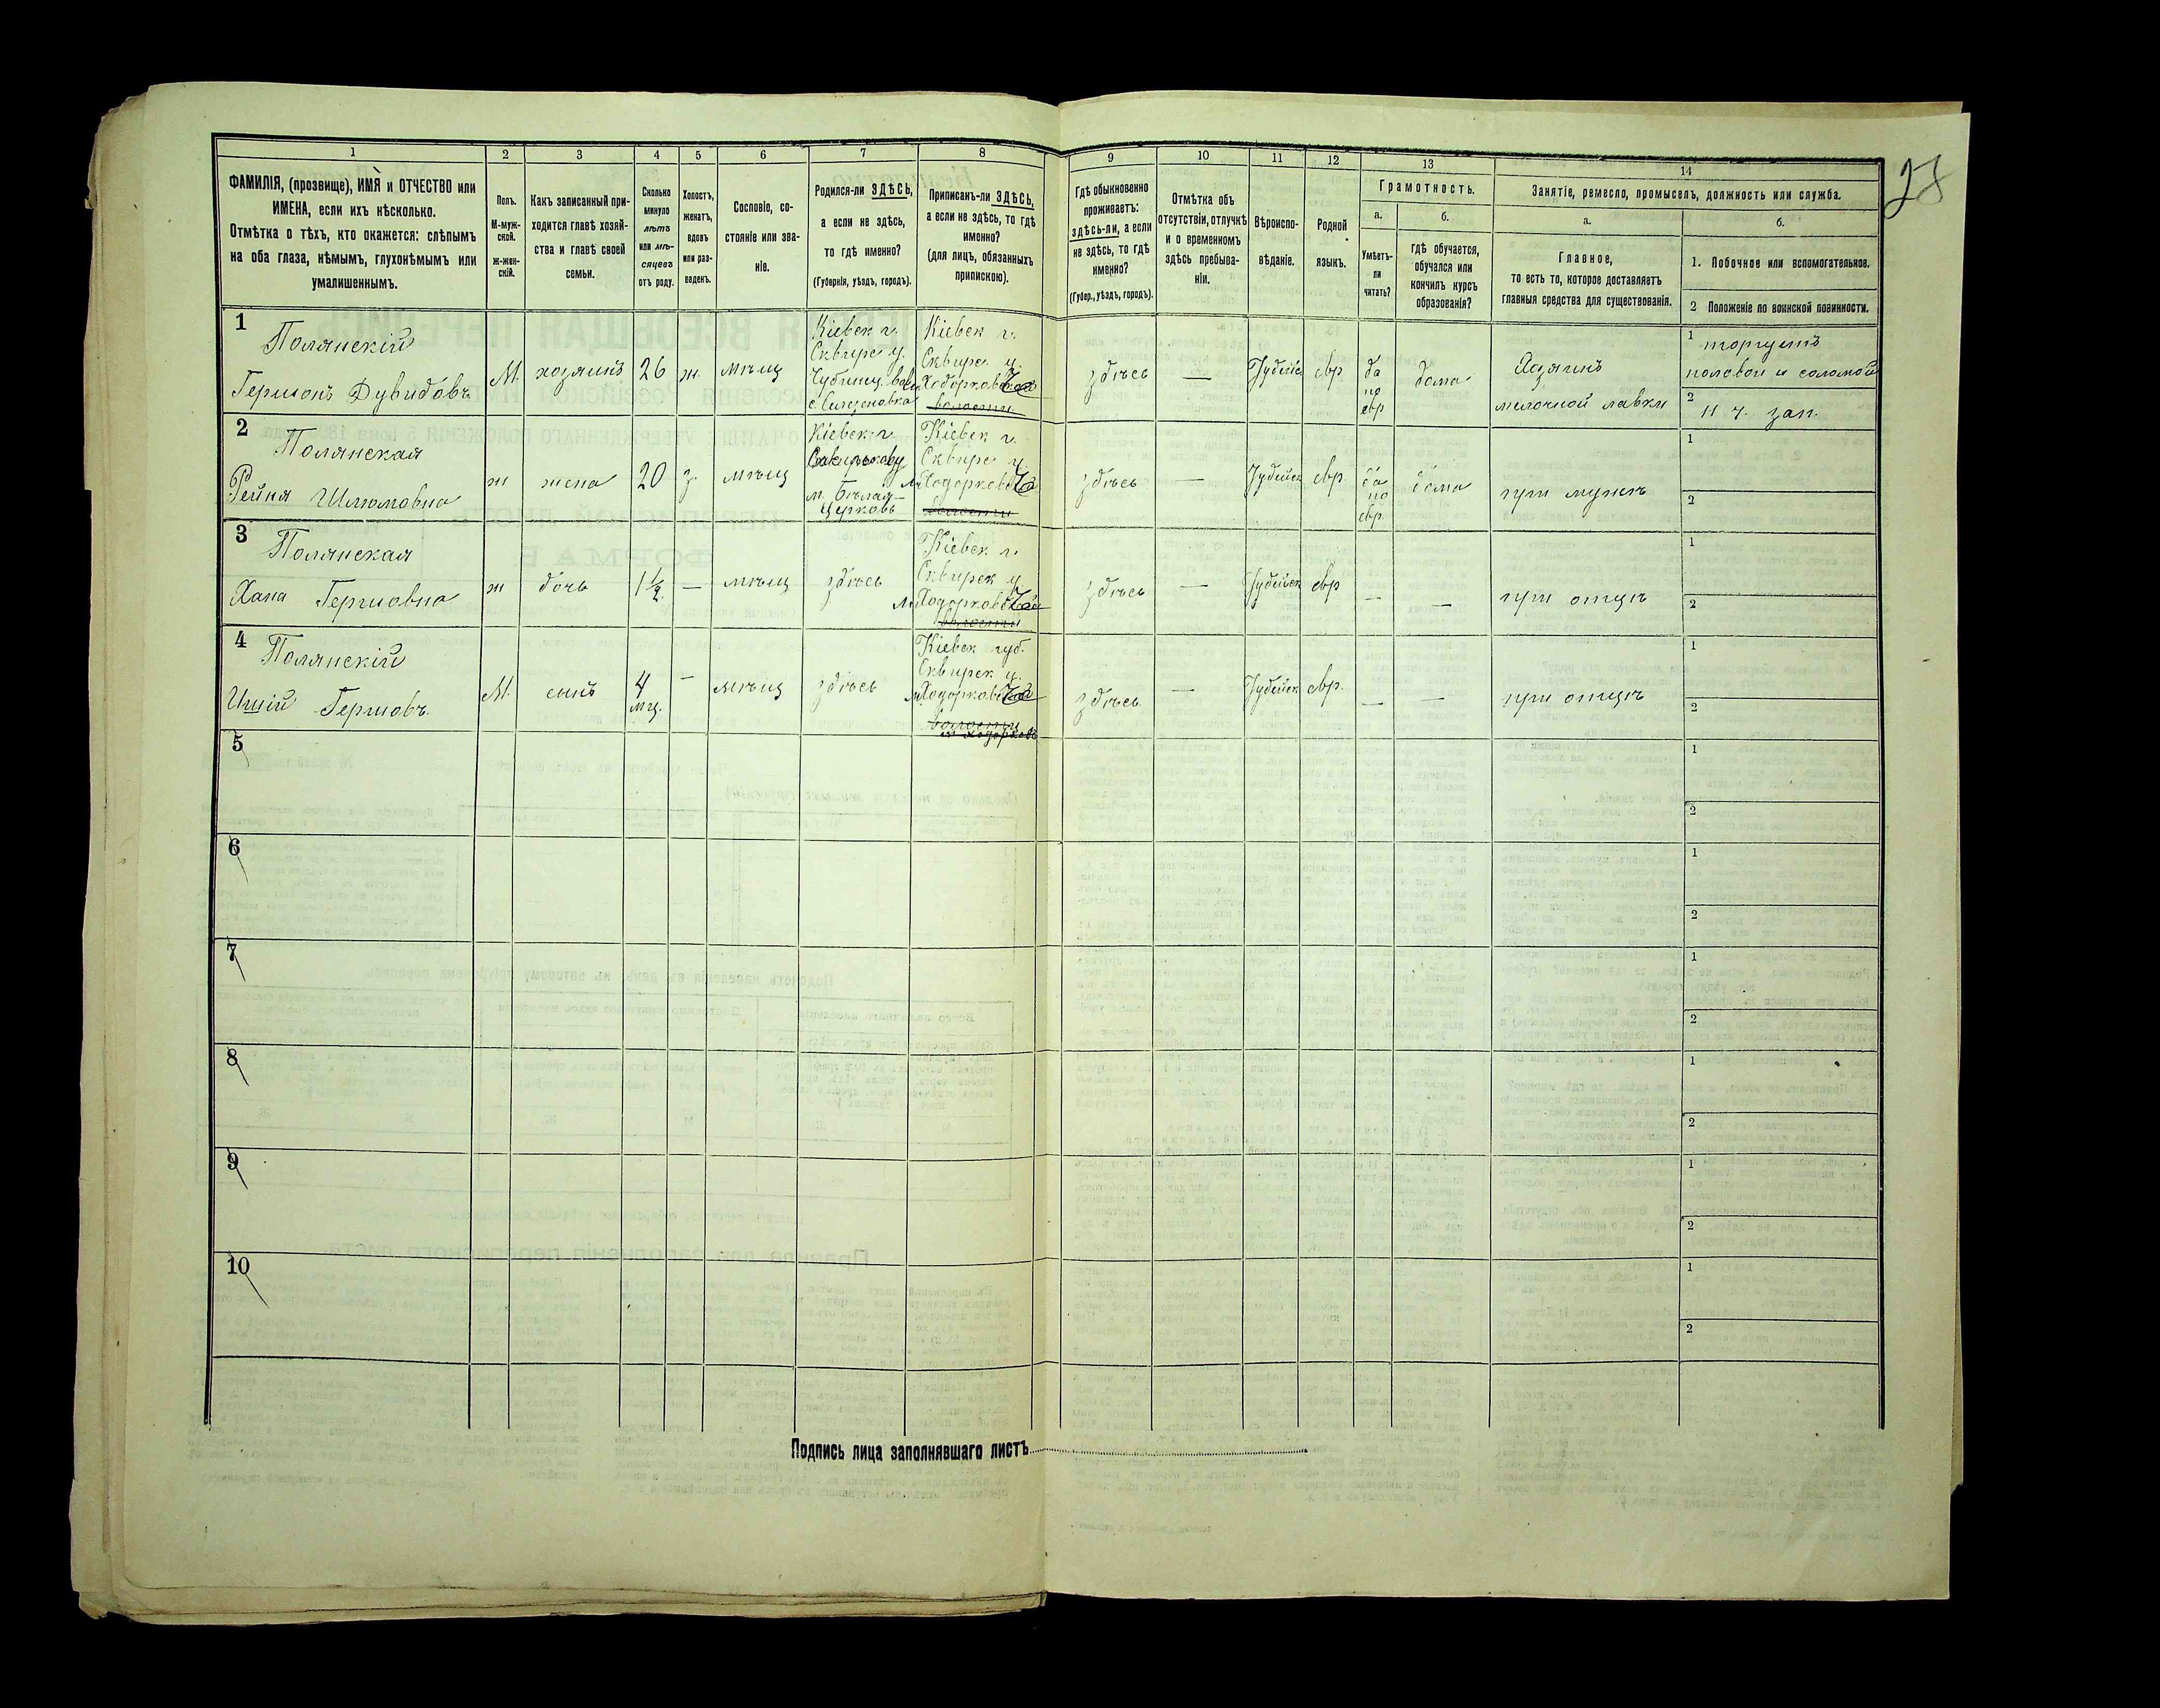 28
1 2 3 4 5 6 7 8 9 10 11 12 13 14
ФАМИЛІЯ, (прозвище), ИМЯ и ОТЧЕСТВО или
ИМЕНА, если ихъ нѣсколько.
Отмѣтка о тѣхъ, кто окажется: слѣпымъ
на оба глаза, нѣмымъ, глухонѣмымъ или
умалишеннымъ.
Полъ.
М-муж-
ской.
ж-жен-
скій.
Какъ записанный при-
ходится главѣ хозяй-
ства и главѣ своей
семьи.
Сколько
минуло
лѣтъ
или мѣ-
сяцевъ
отъ роду.
Холостъ,
женатъ,
вдовъ
или раз-
веденъ.
Сословіе, со-
стояніе или зва-
ніе.
Родился-ли ЗДѢСЬ,
а если не здѣсь,
то гдѣ именно?
(Губернія, уѣздъ, городъ).
Приписанъ-ли ЗДѢСЬ,
а если не здѣсь, то гдѣ
именно?
(для лицъ, обязанныхъ
припискою).
Гдѣ обыкновенно
проживаетъ:
здѣсь-ли, а если
не здѣсь, то гдѣ
именно?
(Губер., уѣздъ, городъ).
Отмѣтка объ
отсутствіи, отлучкѣ
и о временномъ
здѣсь пребыва-
ніи.
Вѣроиспо-
вѣданіе.
Родной
языкъ.
Грамотность.
а.
Умѣетъ-
ли
читать?
б.
гдѣ обучается,
обучался или
кончилъ курсъ
образованія?
Занятіе, ремесло, промыселъ, должность или служба.
а.
Главное,
то есть то, которое доставляетъ
главныя средства для существованія.
б.
1. Побочное или вспомогательное.
2 Положеніе по воинской повинности.
1
Полянскій
Гершонъ Дувидовъ
М.
хозяинъ
26
ж.
мѣщ
Кіевск г.
Сквирс у.
Чубинец. вол
с. Силезеновка
Кіевск г.
Сквирс. у.
м Ходорков
волости
здѣсь
—
Іудейс
евр
да
по
евр
дома
Хазяинъ
мелочной лавки
1 торгуетъ
половой и соломой
2 н ч. зап.
2
Полянская
Рейня Шлюмовна
ж
жена
20
з.
мѣщ
Кіевск г.
м. Бѣлая-
Церковь
Кіевск г.
Сквирс у.
м Ходорков
волости
здѣсь
—
Іудейск
евр.
да
по
евр.
дома
при мужѣ
1
2
3
Полянская
Хана Гершовна
ж
дочь
1½
—
мѣщ
здѣсь
Кіевск г.
Сквирск у.
м Ходорков
волости
здѣсь
—
Іудейск
евр
—
—
при отцѣ
1
2
4
Полянскій
Ицій Гершовъ.
М.
сынъ
4
мц.
—
мѣщ
здѣсь
Кіевск губ.
Сквирск у.
м Ходорков
волости
м Ходорковъ
здѣсь
—
Іудейск
евр.
—
—
при отцѣ
1
2
5
1
2
6
1
2
7
1
2
8
1
2
9
1
2
10
1
2
Подпись лица заполнявшаго листъ